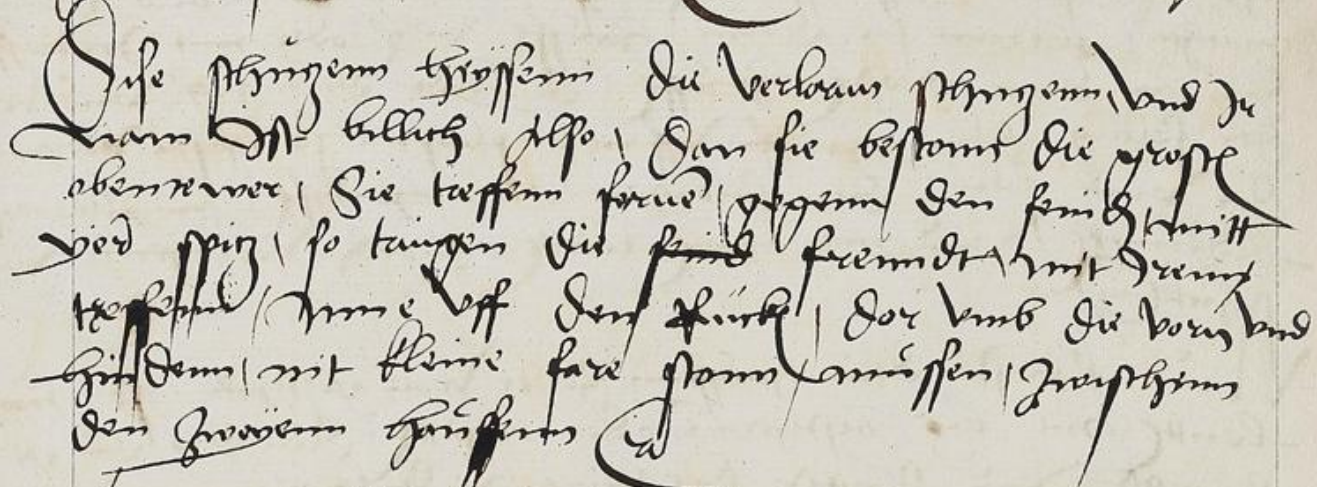 Dise schützenn heyssenn die verlorin schützenn, und Ir
nam Ist billich Also, Dan sie bestone die grosch
obentewer, Sie treffenn fornē, gegenn den feindt, mitt
yer spitz, so trugen die feind freundt, mit Irem
treffenn, Inne uff den Rück, dor umb die vorn und
hindenn, nit kleine fare stonn müssen, zwischenn
den zwayenn hauffenn